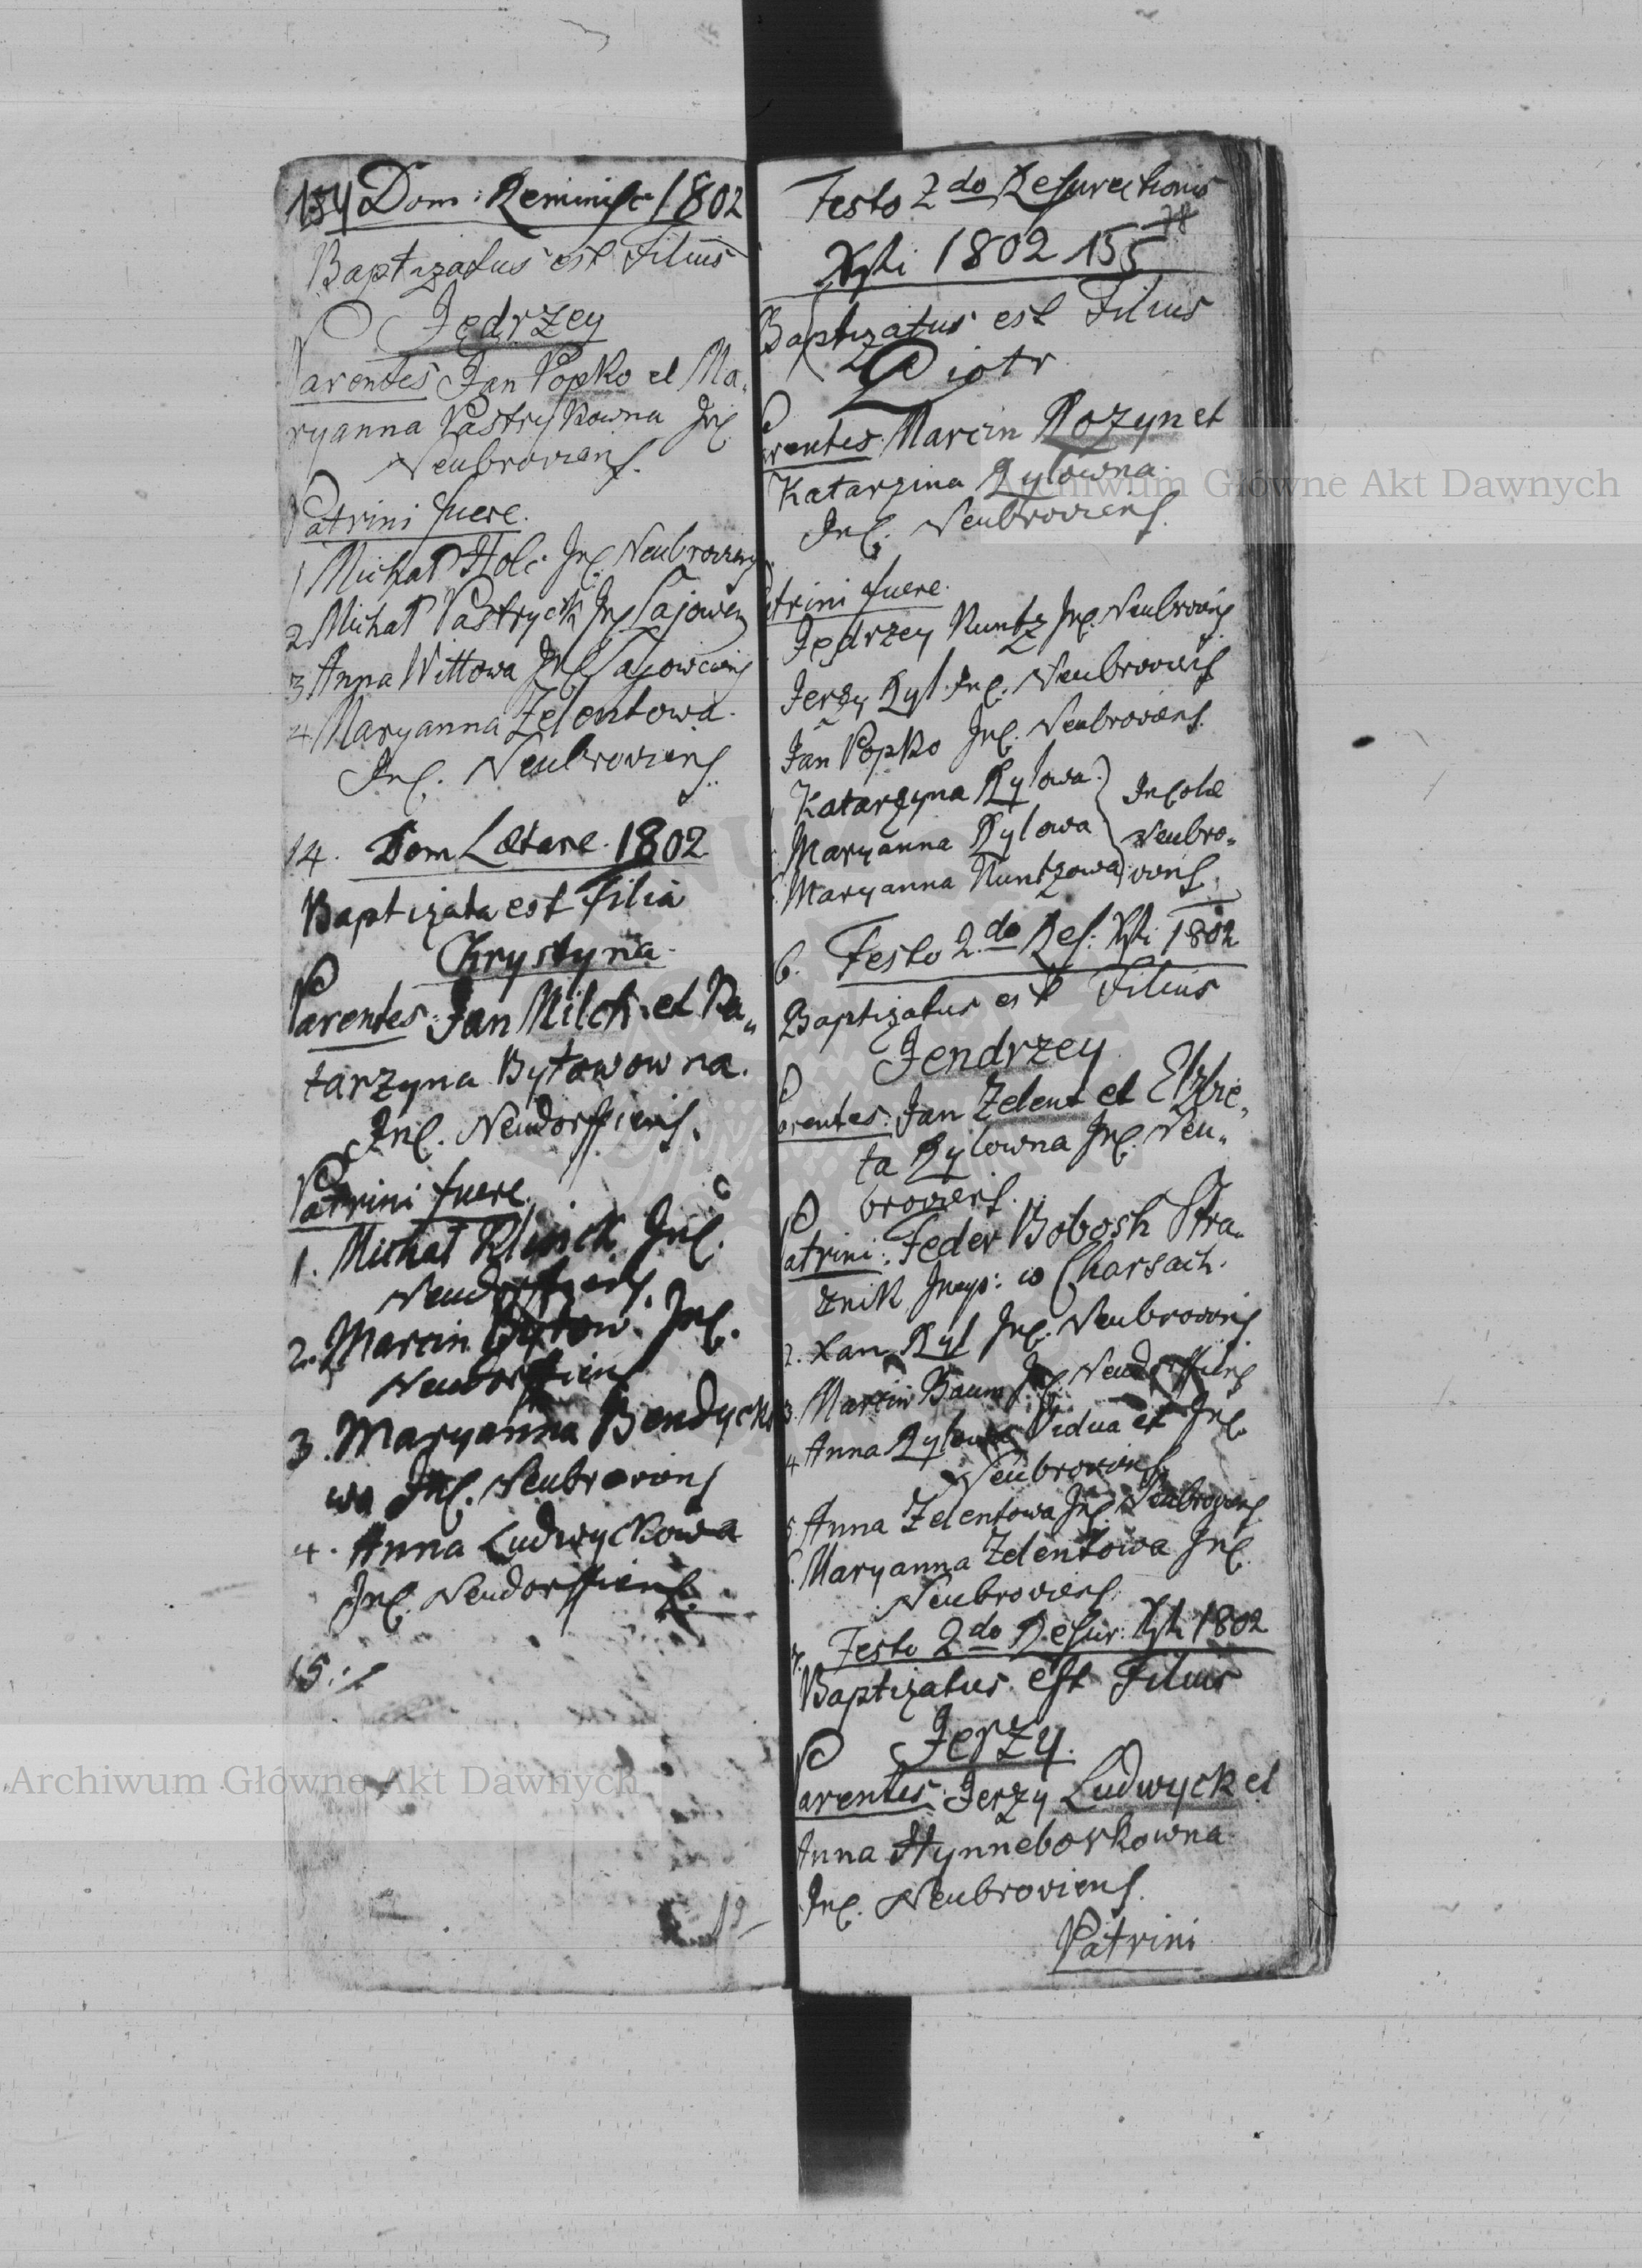 154 Dom: Reminisc: 1802
Baptizatus est Filius
Jędrzey
Parentes Jan Popko et Ma„
ryanna Pastrykowna Inc.
Neubroviens.
Patrini fuere.
1 Michał Holc Inc. Neubroviens
2 Michał Pastryck Inc
3 Anna Wittowa Inc
4 Maryanna Zelentowa.
Inc. Neubroviens.
14. Dom Lætare. 1802
Baptizata est Filia
Chrystyna.
Parentes: Jan Milch. et Ka„
tarzyna Bytowowna.
Inc. Neudorffiens.
Patrini fuere.
1. Michał Inc.
Neudorffiens.
2. Marcin Bytow. Inc.
Neudorffiens
3. Maryanna Bendycko
wa Inc. Neubroviens
4. Anna Ludwyckowa
Inc. Neudorffiens.
15.
Festo 2do Resurectionis
78
Xsti 1802 155
Baptizatus est Filius
Piotr
Parentes: Marcin Rozyn et
Katarzina Rylowna.
Inc. Neubroviens.
Patrini fuere.
Jędrzey Kuntz Inc. Neubroviens
Jerzy Ryl. Inc. Neubroviens
Jan Popko Inc. Neubroviens.
Katarzyna Rylowa. Incolæ
Maryanna Rylowa Neubro„
Maryanna Kuntzowa viens.
6. Festo 2do Res: Xsti 1802
Baptizatus est Filius
Jendrzey
Parentes: Jan Zelent et Elzbie„
ta Rylowna Inc. Neu„
broviens.
Patrini: Feder Bobosh Stra„
znik w Charsach.
2. Xan Ryl Inc. Neubroviens
3. Marcin Baum Inc. Neudorffiens
4 Anna Rylowa Vidua et Inc.
Neubroviens.
5. Anna Zelentowa Inc. Neubroviens
6. Maryanna Zelentowa Inc.
Neubroviens.
7. Festo 2do Resur: Xsti 1802
Baptizatus est Filius
Jerzy.
Parentes: Jerzy Ludwyck et
Anna Hynneborkowna
Inc. Neubroviens.
Patrini
Archiwum Główne Akt Dawnych
Archiwum Główne Akt Dawnych